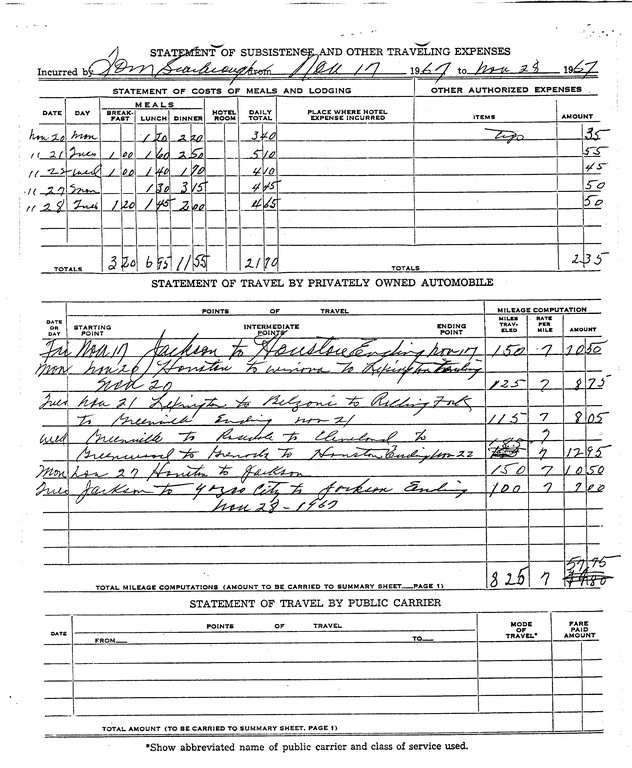 STATEMENT OF SUBSISTENCE AND OTHER TRAVELING EXPENSES
Incurred by Tom Scarbrough from Nov 17 1967 to Nov 28 1967
STATEMENT OF COSTS OF MEALS AND LODGING OTHER AUTHORIZED EXPENSES
DATE DAY MEALS BREAK-FAST LUNCH DINNER HOTEL ROOM DAILY TOTAL PLACE WHERE HOTEL EXPENSE INCURRED ITEMS AMOUNT
Nov 20 Mon 1 20 2 20 3 40 tips 35
11 21 Tues 1 00 1 60 2 50 5 10 55
11 22 Wed 1 00 1 40 1 70 4 10 45
11 27 Mon 1 30 3 15 4 45 50
11 28 Tues 1 20 1 45 2 00 4 65 50
TOTALS 3 20 6 95 11 55 21 70 TOTALS 2 35
STATEMENT OF TRAVEL BY PRIVATELY OWNED AUTOMOBILE
DATE OR DAY POINTS OF TRAVEL MILEAGE COMPUTATION
STARTING POINT INTERMEDIATE POINTS ENDING POINT MILES TRAV-ELED RATE PER MILE AMOUNT
Fri Nov 17 Jackson to Houston Ending Nov 17 150 7 10 50
Mon Nov 20 Houston to Winona to Lexington Ending
Nov 20 125 7 8 75
Tues Nov 21 Lexington to Belzoni to Rolling Fork
to Greenville Ending Nov 21 115 7 8 05
Wed Greenville to Rosedale to Cleveland to 185 7
Greenwood to Grenada to Houston Ending Nov 22 7 12 95
Mon Nov 27 Houston to Jackson 150 7 10 50
Tues Jackson to Yazoo City to Jackson Ending 100 7 7 00
Nov 28 - 1967
57.75
TOTAL MILEAGE COMPUTATIONS (AMOUNT TO BE CARRIED TO SUMMARY SHEET PAGE 1) 825 7
STATEMENT OF TRAVEL BY PUBLIC CARRIER
DATE POINTS OF TRAVEL MODE OF TRAVEL* FARE PAID AMOUNT
FROM TO
TOTAL AMOUNT (TO BE CARRIED TO SUMMARY SHEET, PAGE 1)
*Show abbreviated name of public carrier and class of service used.